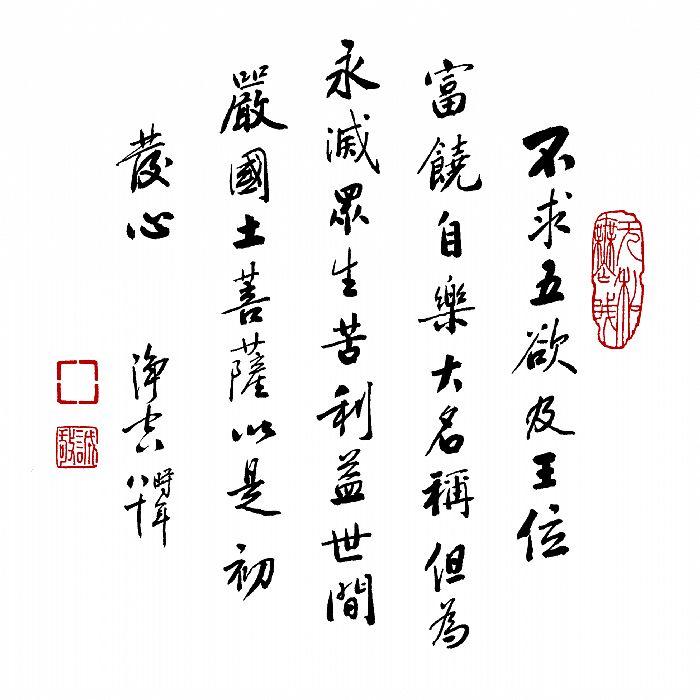 不求五欲及王位
富饒自樂大名稱但為
永滅眾生苦利益世間
嚴國土菩薩以是初
發心
淨空時年八十
誠敬